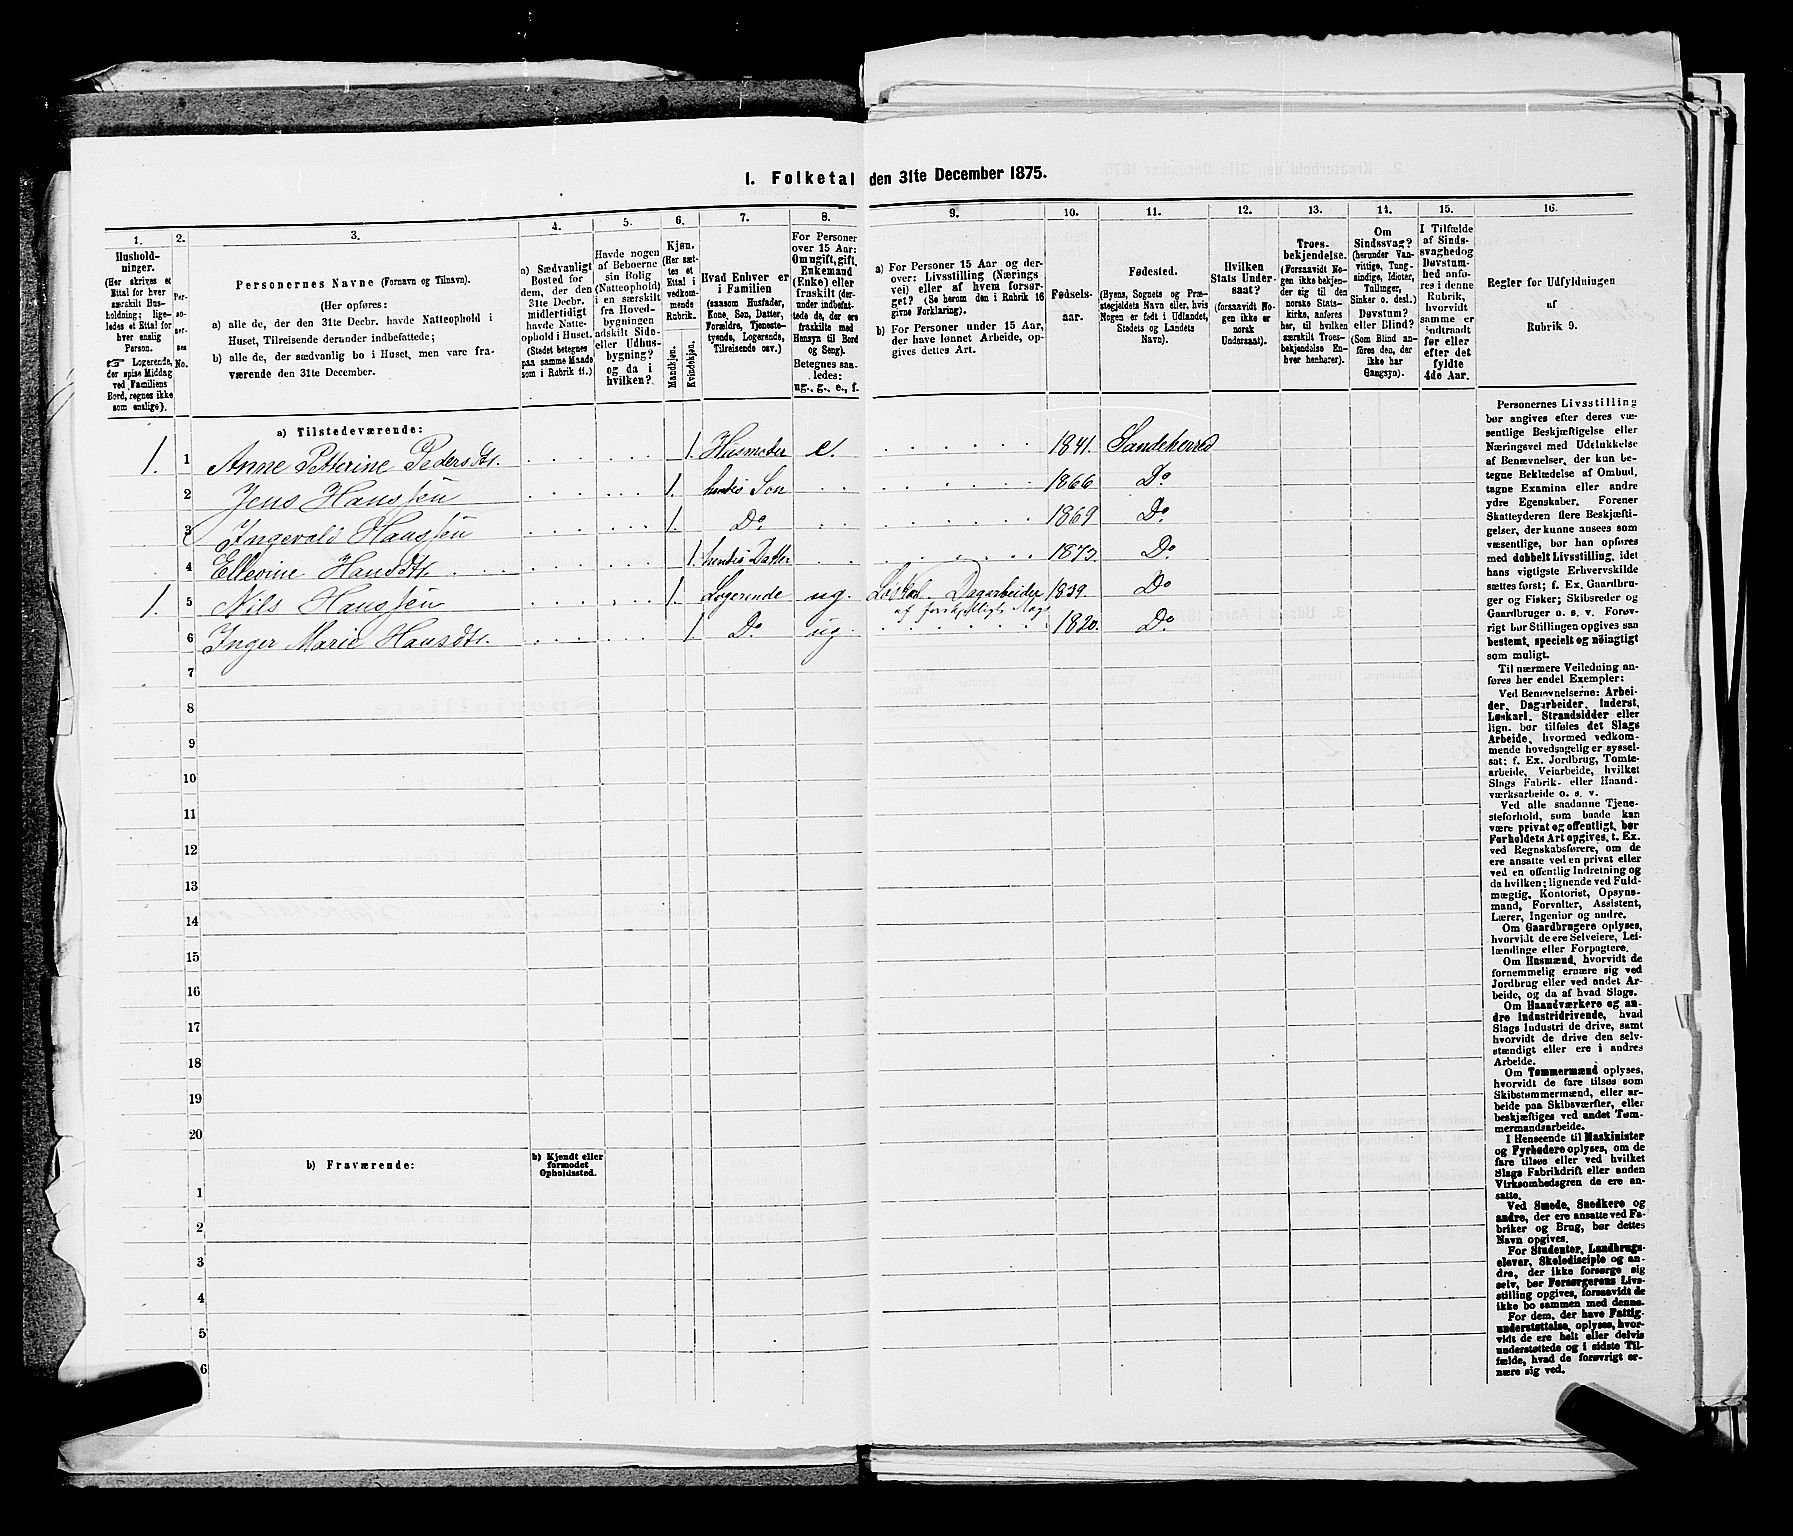 I. Folketal den 31te December 1875.
1. 2. 3. 4. 5. 6. 7. 8. 9. 10. 11. 12. 13. 14. 15. 16.
Hushold-
ninger.
(Her skrives et
Ettal for hver
særskilt Hus-
holdning; lige-
ledes et Ettal for
hver enslig
Person.
☞ Logerende,
der spise Middag
ved Familiens
Bord, regnes ikke
som enslige).
Per-
so-
ner-
nes
No.
Personernes Navne (Fornavn og Tilnavn).
(Her opføres:
a) alle de, der den 31te Decbr. havde Natteophold i
Huset, Tilreisende derunder indbefattede;
b) alle de, der sædvanlig bo i Huset, men vare fra-
værende den 31te December.
a) Sædvanligt
Bosted for
dem, der den
31te Decbr.
midlertidigt
havde Natte-
ophold i Huset.
(Stedet betegnes
paa samme Maade
som i Rubrik 11.)
Havde nogen
af Beboerne
sin Bolig
(Natteophold)
i en særskilt
fra Hoved-
bygningen
adskilt Side-
eller Udhus-
bygning?
og da i
hvilken?
Kjøn.
(Her sæt-
tes et
Ettal i
vedkom-
mende
Rubrik.
Mandkjøn.
Kvindekjøn.
Hvad Enhver er
i Familien
(saasom Husfader,
Kone, Søn, Datter,
Forældre, Tjeneste-
tyende, Logerende,
Tilreisende osv.)
For Personer
over 15 Aar:
Om ugift, gift,
Enkemand
(Enke) eller
fraskilt (der-
under indbefat-
tede de, der ere
fraskilte med
Hensyn til Bord
og Seng).
Betegnes saa-
ledes:
ug., g., e., f.
a) For Personer 15 Aar og der-
over: Livsstilling (Nærings-
vei) eller af hvem forsør-
get? (Se herom den i Rubrik 16
givne Forklaring).
b) For Personer under 15 Aar,
der have lønnet Arbeide, op-
gives dettes Art.
Fødsels-
aar.
Fødested.
(Byens, Sognets og Præ-
stegjeldets Navn eller, hvis
Nogen er født i Udlandet,
Stedets og Landets
Navn).
Hvilken
Stats Under-
saat?
(forsaavidt No-
gen ikke er
norsk
Undersaat).
Troes-
bekjendelse.
(Forsaavidt No-
gen ikke bekjen-
der sig til den
norske Stats-
kirke, anføres
her, til hvilken
særskilt Troes-
bekjendelse En-
hver henhører).
Om
Sindssvag?
(herunder Van-
vittige, Tung-
sindige, Idioter,
Tullinger,
Sinker o. desl.)
Døvstum?
eller Blind?
(Som Blind an-
føres den, der
ikke har
Gangsyn).
I Tilfælde
af Sinds-
svaghed og
Døvstum-
hed anfø-
res i denne
Rubrik,
hvorvidt
samme er
indtraadt
før eller
efter det
fyldte
4de Aar.
Regler for Udfyldningen
af
Rubrik 9.
a) Tilstedeværende:
1. 1 Anne Petterine Pedersdt. 1. Husmoder e. 1841. Sandeherred
2 Jens Hanssen 1. hendes Søn 1866 Do
3 Ingevald Hanssen 1. Do. 1869 Do.
4 Ellevine Hansdt. 1. hendes Datter 1873. Do.
1. 5 Nils Hanssen 1. Logerende ug. Løskarl. Dagarbeider 1839 Do
af forskjelligt Slags
6 Inger Marie Hansdt. 1. Do. ug. 1820. Do.
7
8
9
10
11
12
13
14
15
16
17
18
19
20
b) Fraværende:
b) Kjendt eller
formodet
Opholdssted.
1
2
3
4
5
6
Personernes Livsstilling
bør angives efter deres væ-
sentlige Beskjæftigelse eller
Næringsvei med Udelukkelse
af Benævnelser, der kun be-
tegne Beklædelse af Ombud,
tagne Examina eller andre
ydre Egenskaber. Forener
Skatteyderen flere Beskjæfti-
gelser, der kunne ansees som
væsentlige, bør han opføres
med dobbelt Livsstilling, idet
hans vigtigste Erhvervskilde
sættes først; f. Ex. Gaardbru-
ger og Fisker; Skibsreder og
Gaardbruger o. s. v. Forøv-
rigt bør Stillingen opgives saa
bestemt, specielt og nøiagtigt
som muligt.
Til nærmere Veiledning an-
føres her endel Exempler:
Ved Benævnelserne: Arbei-
der, Dagarbeider, Inderst,
Løskarl, Strandsidder eller
lign. bør tilføies det Slags
Arbeide, hvormed vedkom-
mende hovedsagelig er syssel-
sat; f. Ex. Jordbrug, Tomte-
arbeide, Veiarbeide, hvilket
Slags Fabrik- eller Haand-
værksarbeide o. s. v.
Ved alle saadanne Tjene-
steforhold, som baade kan
være privat og offentligt, bør
Forholdets Art opgives, t. Ex.
ved Regnskabsførere, om de
ere ansatte ved en privat eller
ved en offentlig Indretning og
da hvilken; lignende ved Fuld-
mægtig, Kontorist, Opsyns-
mand, Forvalter, Assistent,
Lærer, Ingeniør og andre.
Om Gaardbrugere oplyses,
hvorvidt de ere Selveiere, Lei-
lændinge eller Forpagtere.
Om Husmænd, hvorvidt de
fornemmelig ernære sig ved
Jordbrug eller ved andet Ar-
beide, og da af hvad Slags.
Om Haandværkere og an-
dre Industridrivende, hvad
Slags Industri de drive, samt
hvorvidt de drive den selv-
stændigt eller ere i andres
Arbeide.
Om Tømmermænd oplyses,
hvorvidt de fare tilsøs som
Skibstømmermænd, eller ar-
beide paa Skibsværfter, eller
beskjæftiges ved andet Tøm-
mermandsarbeide.
I Henseende til Maskinister
og Fyrbødere oplyses, om de
fare tilsøs eller ved hvilket
Slags Fabrikdrift eller anden
Virksomhedsgren de ere an-
satte.
Ved Smede, Snedkere og
andre, der ere ansatte ved Fa-
briker og Brug, bør dettes
Navn opgives.
For Studenter, Landbrugs-
elever, Skoledisciple og an-
dre, der ikke forsørge sig
selv, bør Forsørgerens Livs-
stilling opgives, forsaavidt de
ikke bo sammen med denne.
For dem, der have Fattig-
understøttelse, oplyses, hvor-
vidt de ere helt eller delvis
understøttede og i sidste Til-
fælde, hvad de forøvrigt er-
nære sig ved.